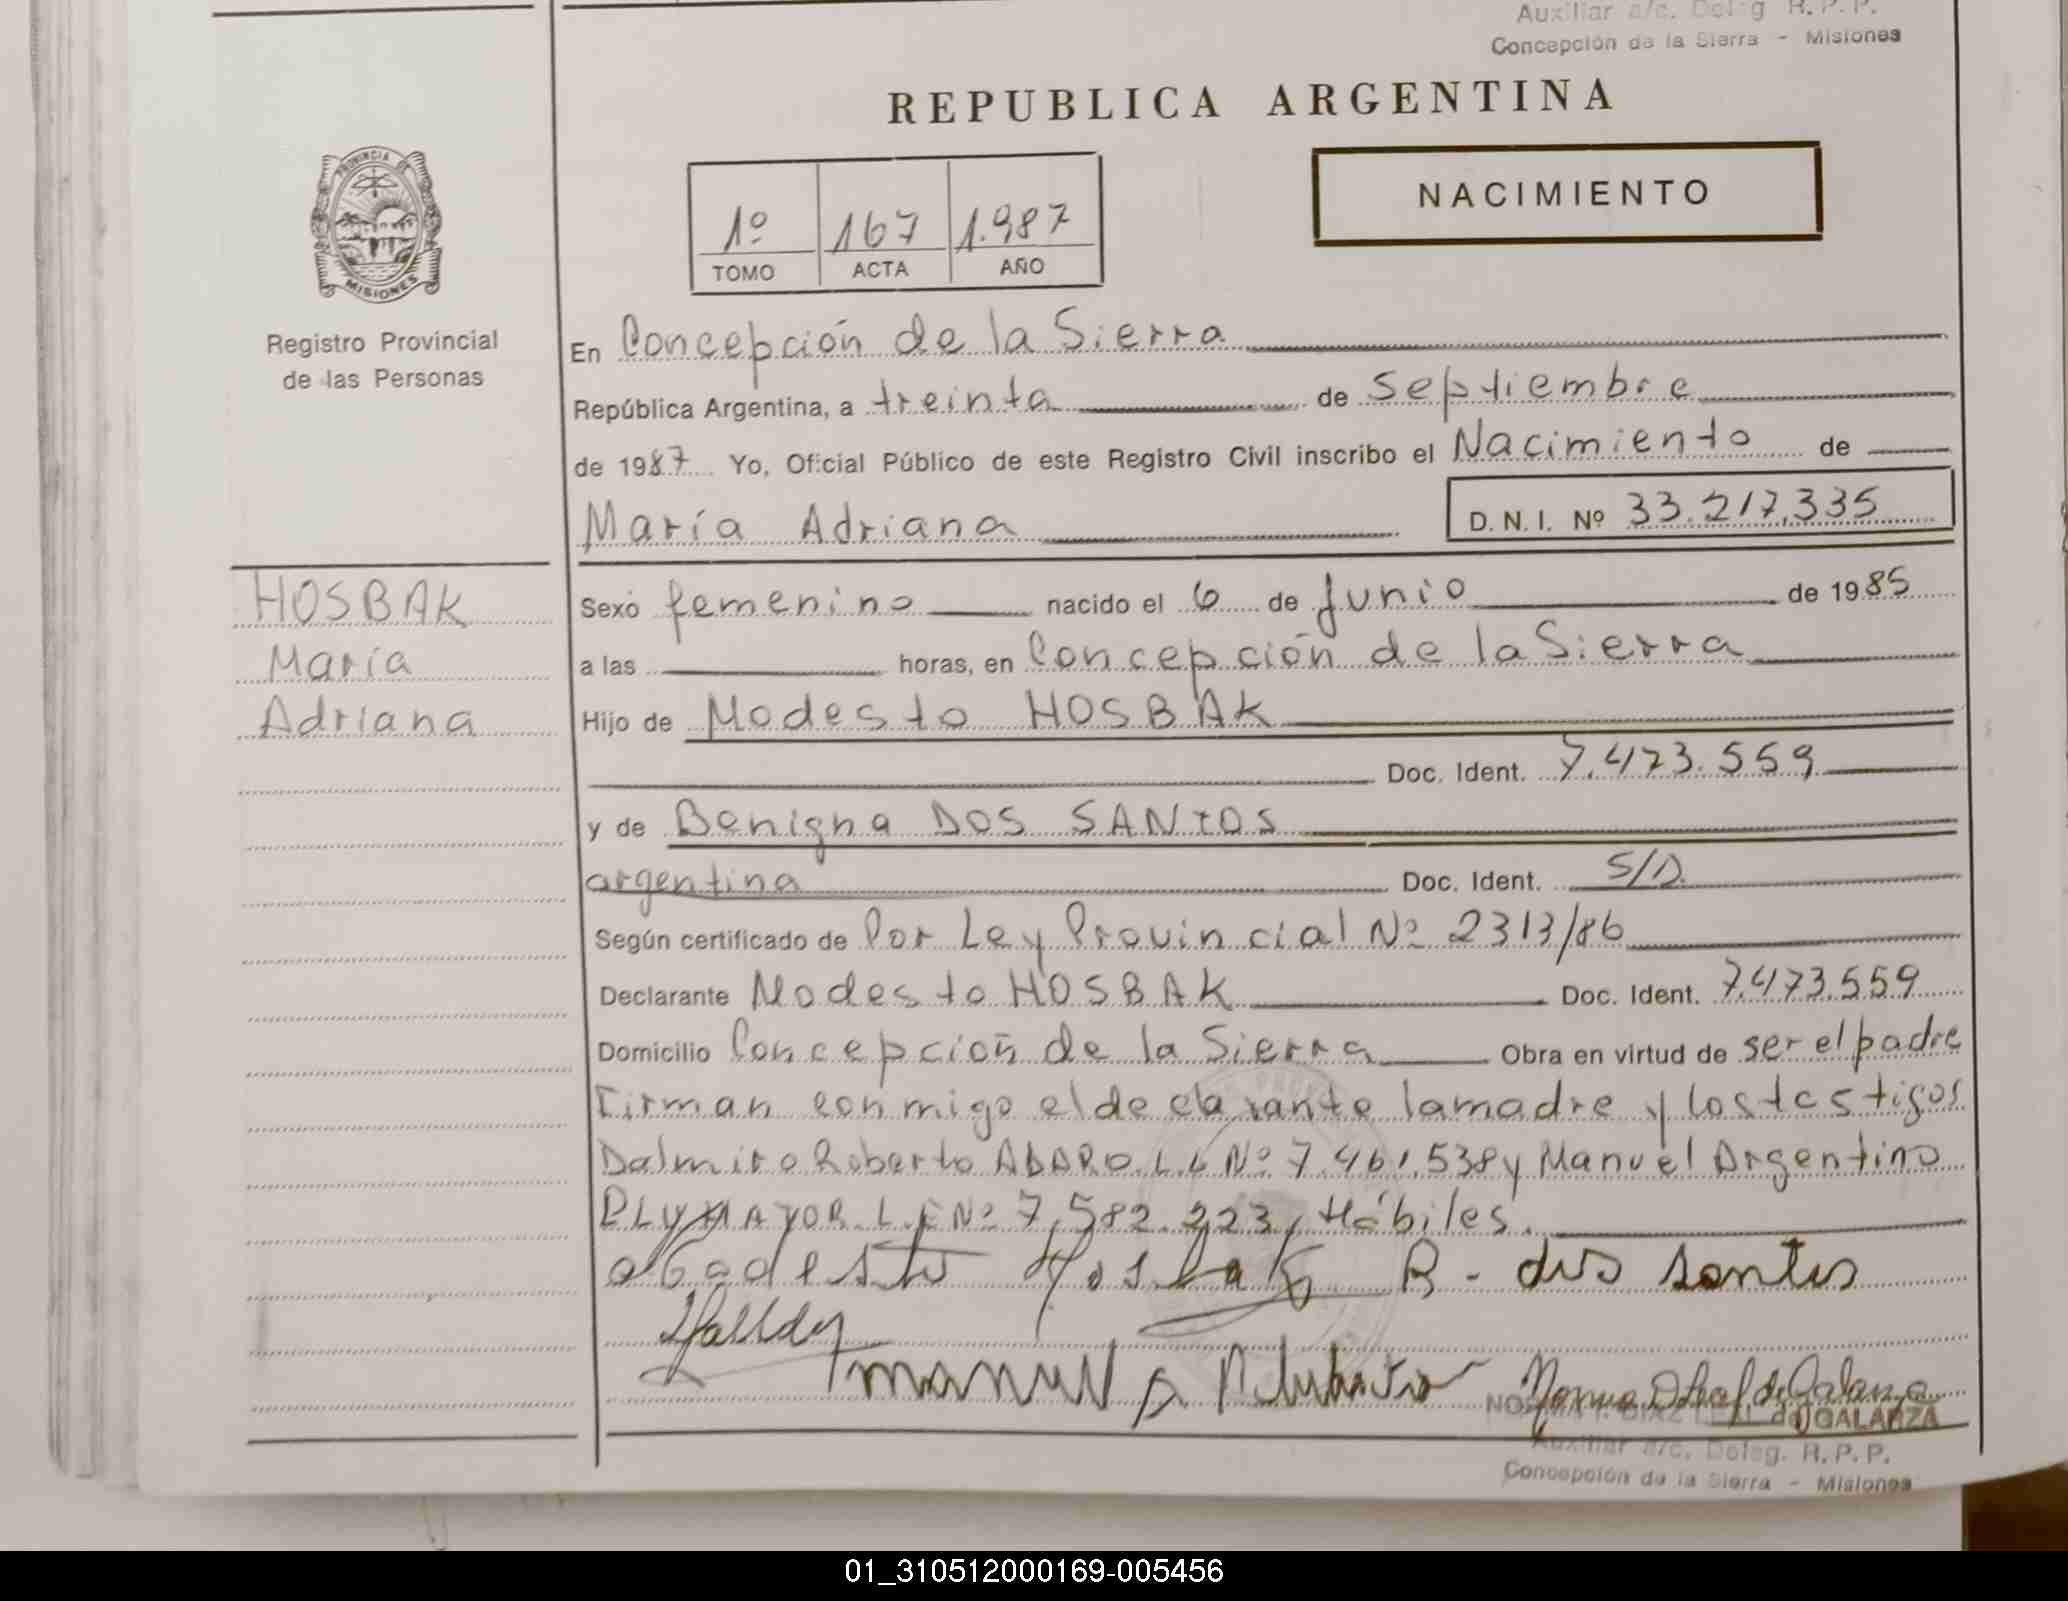 Auxiliar a/c. Deleg R. P. P.
Concepción de la Sierra - Misiones
REPUBLICA ARGENTINA
PROVINCIA DE
MISIONES
Registro Provincial
de las Personas
1º 167 1.987
TOMO ACTA AÑO
NACIMIENTO
En Concepción de la Sierra
República Argentina, a treinta de Septiembre
de 1987 Yo, Oficial Público de este Registro Civil inscribo el Nacimiento de
María Adriana D. N. I. Nº 33.217.335
HOSBAK
María
Adriana
Sexo femenino nacido el 6 de Junio de 1985
a las horas, en Concepción de la Sierra
Hijo de Modesto HOSBAK
Doc. Ident. 7.473.559
y de Benigna DOS SANTOS
argentina Doc. Ident. S/D.
Según certificado de Por Ley Provincial Nº 2313/86
Declarante Modesto HOSBAK Doc. Ident. 7.473.559
Domicilio Concepción de la Sierra Obra en virtud de ser el padre
Firman conmigo el declarante la madre y los testigos
Dalmiro Roberto Nº 7.461.538 y Manuel Argentino
L.E Nº 7.582.223, Hábiles.
Modesto Hosbak B. dos santos
Manuel A
Norma D Leal de Galarza
NORMA I. DIAZ LEAL de GALARZA
Auxiliar a/c. Deleg. R. P. P.
Concepción de la Sierra - Misiones
01_310512000169-005456